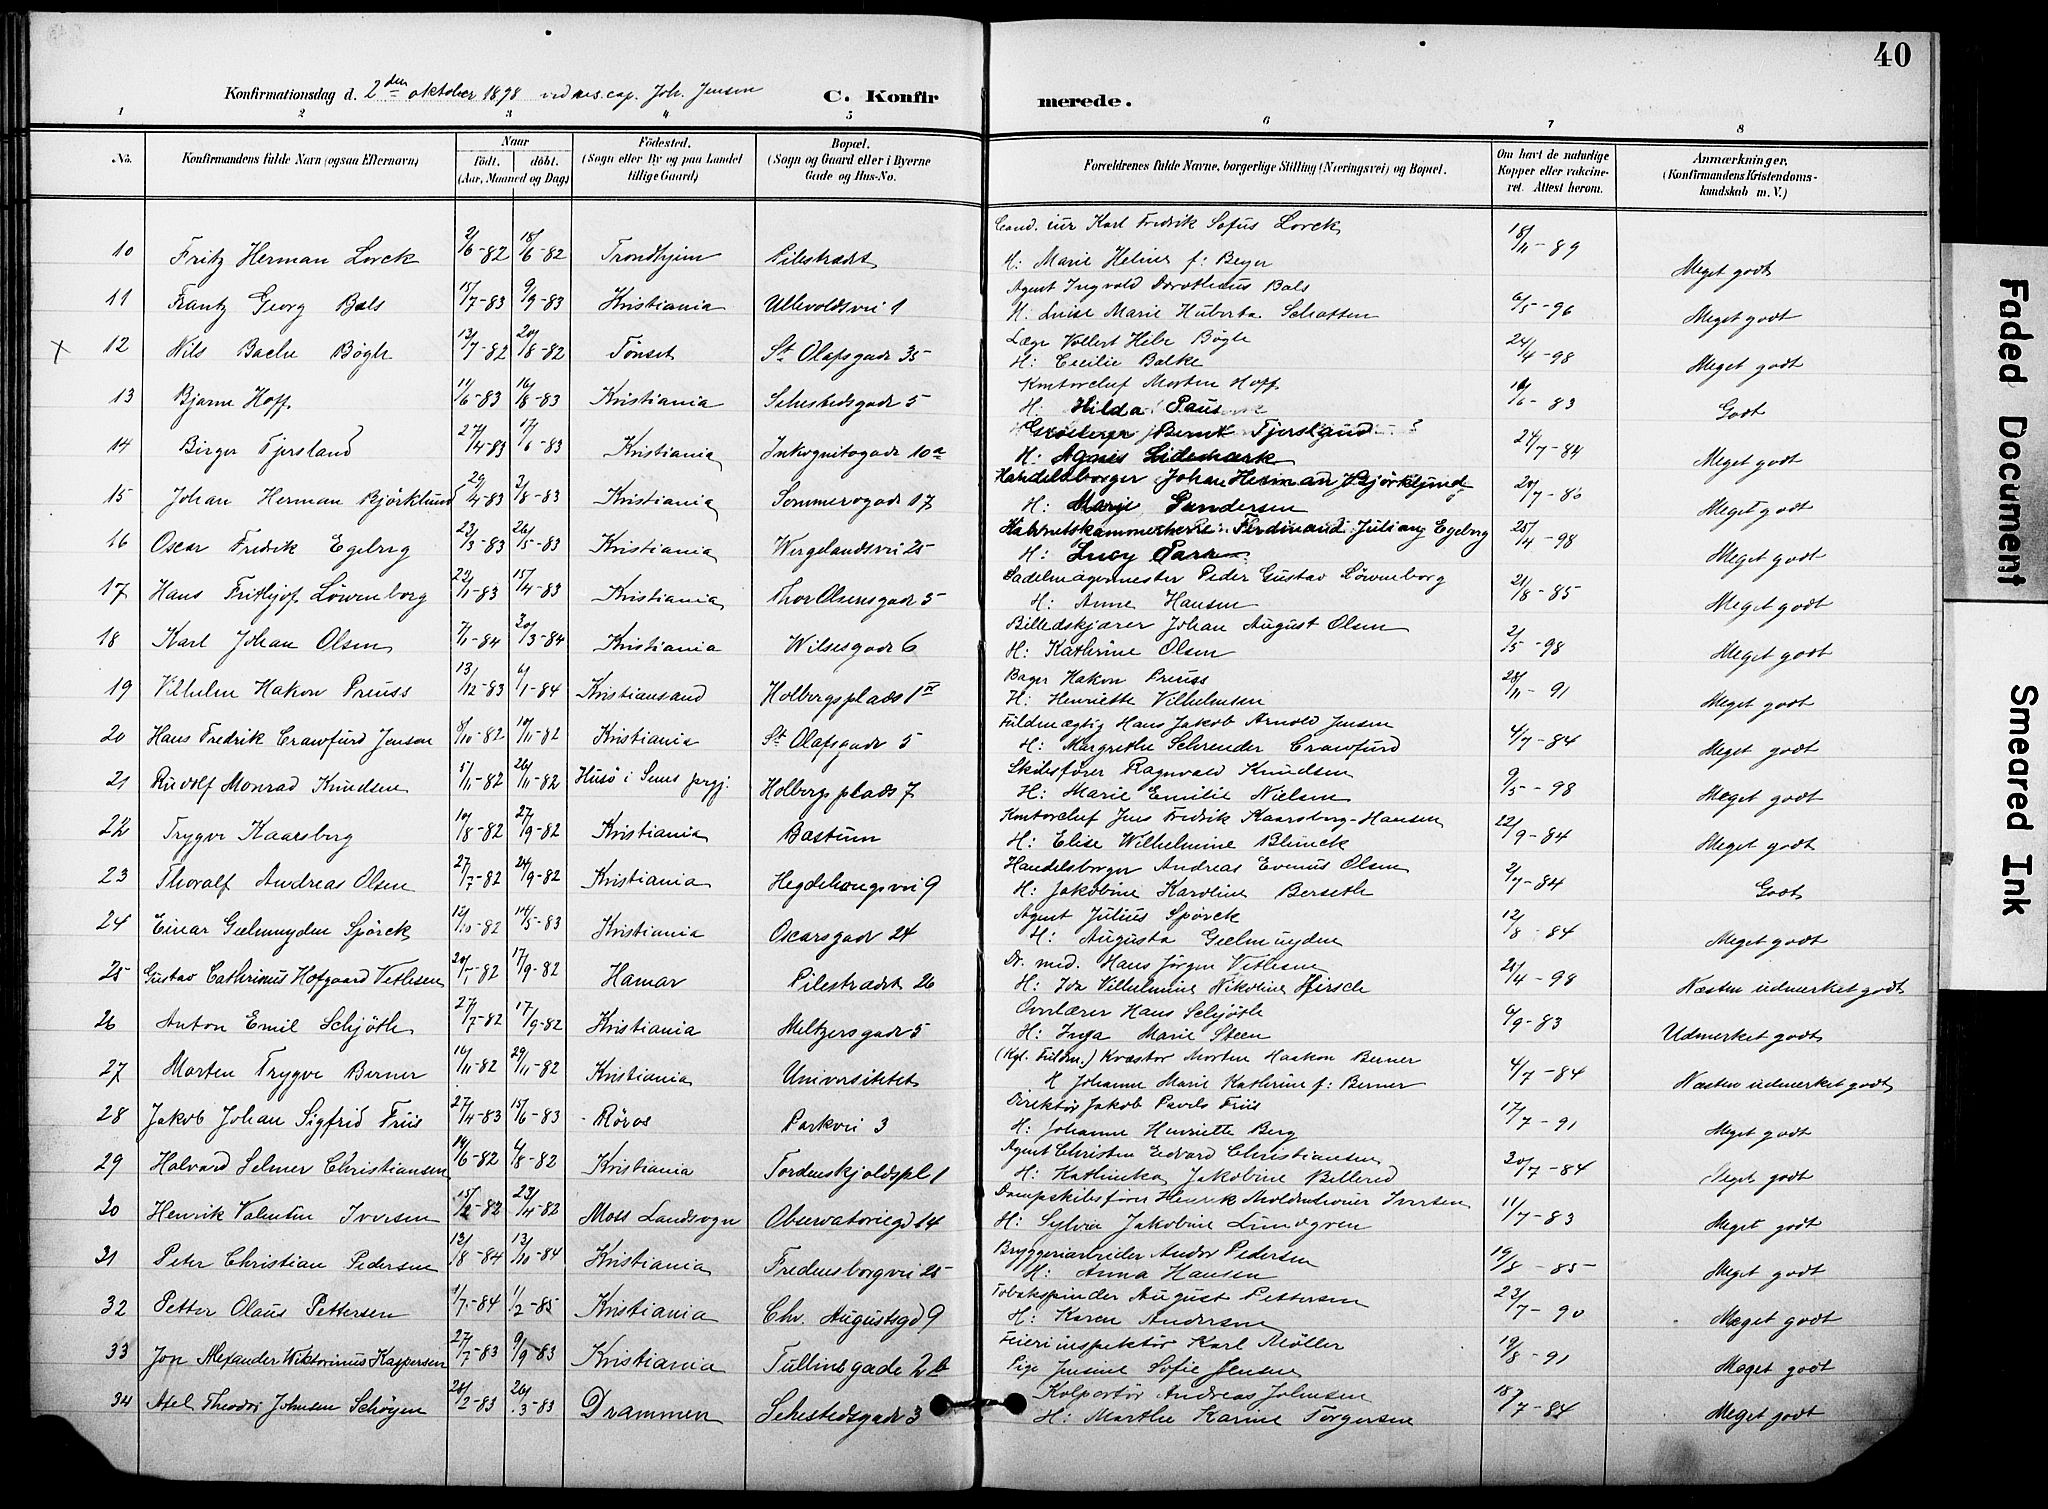 40
Konfirmationsdag d. 2den oktober 1898 ved res. cap. Joh. Jensen C. Konfirmerede.
1 2 3 4 5 6 7 8
No. Konfirmandens fulde Navn (ogsaa Efternavn) Naar født. døbt. (Aar, Maaned og Dag) Fødested. (Sogn eller By og paa Landet tillige Gaard) Bopæl. (Sogn og Gaard eller i Byerne Gade og Hus-No. Forældrenes fulde Navne, borgerlige Stilling (Næringsvei) og Bopæl. Om havt de naturlige Kopper eller vakcineret. Attest herom. Anmærkninger. (Konfirmandens Kristendomskundskab m. V.)
Cand. jur Karl Fredrik Sofus Lorck
10 Fritz Herman Lorck 2/6-82 18/6-82 Trondhjem Pilestrædet H: Marie Helene f: Beyer 18/11-89 Meget godt
Agent Ingvald Dorotheus Bals
11 Frantz Georg Bals 15/7-83 9/9-83 Kristiania Ullevoldsvei 1 H. Luise Marie Huberta Schatten 6/5-96 Meget godt
Læge Vollert Hele Bøgh
X 12 Nils Bache Bøgh 13/7-82 20/8-82 Tønset St Olafsgade 35 H: Cecilie Balke 24/4-98 Meget godt
Kontorchef Morten Hoff
13 Bjarne Hoff 11/6-83 16/8-83 Kristiania Sehestedsgade 5 H: Hilda Paus 16/6-83 Godt
Bernt Fjersland
14 Birger Fjersland 27/4-83 17/6-83 Kristiania Inkognitogade 10a H: Agnes Lidemark 24/7-84 Meget godt
Handelsborger Johan Herman Bjørklund
15 Johan Herman Bjørklund 29/4-83 3/8-83 Kristiania Sommerogade 17 H: Marie Gundersen Meget godt
Kabinetskammerherre Ferdinand Julian Egeberg
16 Oscar Fredrik Egeberg 23/3-83 26/5-83 Kristiania Wergelandsvei 25 H: Lucy Parr 25/4-98 Meget godt
Sadelmagermester Peder Gustav Löwenborg
17 Hans Frithjof Löwenborg 22/1-83 15/4-83 Kristiania Thor Olsensgade 5 H: Anne Hansen 21/8-85 Meget godt
Billedskjærer Johan August Olsen
18 Karl Johan Olsen 7/1-84 30/3-84 Kristiania Wilsesgade 6 H: Kathrine Olsen 2/5-98 Meget godt
Bager Hakon Preuss
19 Vilhelm Hakon Preuss 13/12-83 6/1-84 Kristiansand Holbergsplads 1 H: Henriette Vilhelmsen 28/11-91 Meget godt
Fuldmægtig Hans Jakob Arnold Jensen
20 Hans Fredrik Crawfurd Jensen 8/10-82 10/11-82 Kristiania St Olafsgade 5 H: Margrethe Schrender Crawfurd 4/7-84 Meget godt
Skibsfører Ragnvald Knudsen
21 Rudolf Monrad Knudsen 5/11-82 26/11-82 Husö i Sems prgj. Holbergsplads 7 H: Marie Emilie Nielsen 9/5-98 Meget godt
Kontorchef Jens Fredrik Kaarsberg-Hansen
22 Trygve Kaarsberg 10/8-82 27/9-82 Kristiania Bæstum H: Elise Wilhelmine Blunck 22/9-84 Meget godt
Handelsborger Andreas Evenus Olsen
23 Thoralf Andreas Olsen 27/7-82 24/9-82 Kristiania Hegdehaugsvei 9 H: Jakobine Karoline Berseth 2/7-84 Godt
Agent Julius Spørck
24 Einar Geelmuyden Spørck 12/10-82 14/5-83 Kristiania Oscarsgade 24 H: Augusta Geelmuyden 12/8-84 Meget godt
Dr. med. Hans Jörgen Vetlesen
25 Gustav Cathrinus Hofgaard Vetlesen 20/7-82 17/9-82 Hamar Pilestrædet 26 H: Ida Vilhelmine Nikoline Hirsch 21/4-98 Næsten udmerket godt
Overlærer Hans Schjøth
26 Anton Emil Schjøth 27/7-82 17/9-82 Kristiania Meltzersgade 5 H: Inga Marie Steen 6/9-83 Udmerket godt
(Kgl. Fuldm.) Kvæstor Morten Haakon Berner
27 Morten Trygve Berner 16/11-82 29/11-82 Kristiania Universitetet H Johanne Marie Kathrine f: Berner 4/7-84 Næsten udmerket godt
Direktør Jakob Pavels Friis
28 Jakob Johan Sigfrid Friis 27/4-83 15/6-83 Röros Parkvei 3 H: Johanne Henriette Berg 17/7-91 Meget godt
Agent Christen Edvard Christiansen
29 Halvard Selmer Christiansen 14/6-82 6/8-82 Kristiania Tordenskjoldspl 1 H: Kathinka Jakobine Billered 20/7-84 Meget godt
Dampskibsfører Henrik Moldenhouer Iversen
30 Henrik Valentin Iversen 15/2-82 23/4-82 Moss Landsogn Observatoriegd 14 H: Sylvia Jakobine Lundgren 11/7-83 Meget godt
Bryggeriarbeider Andor Pedersen
31 Peter Christian Pedersen 12/8-84 13/10-84 Kristiania Fredensborgvei 25 H: Anna Hansen 19/8-85 Meget godt
Tobakspinder August Pettersen
32 Petter Olaus Pettersen 1/7-84 1/2-85 Kristiania Chr. Augustsgd 9 H: Karen Andersen 23/7-90 Meget godt
Feierinspektør Karl Møller
33 Jon Alexander Wiktorinus Kaspersen 27/7-83 9/9-83 Kristiania Tullinsgade 2b Pige Jensine Sofie Jensen 19/8-91 Meget godt
Kolportør Andreas Johnsen
34 Axel Theodor Johnsen Schöyen 28/2-83 26/3-83 Drammen Sehestedsgade 3 H: Marthe Karine Torgersen 18/7-84 Meget godt
Faded Document
Smeared Ink